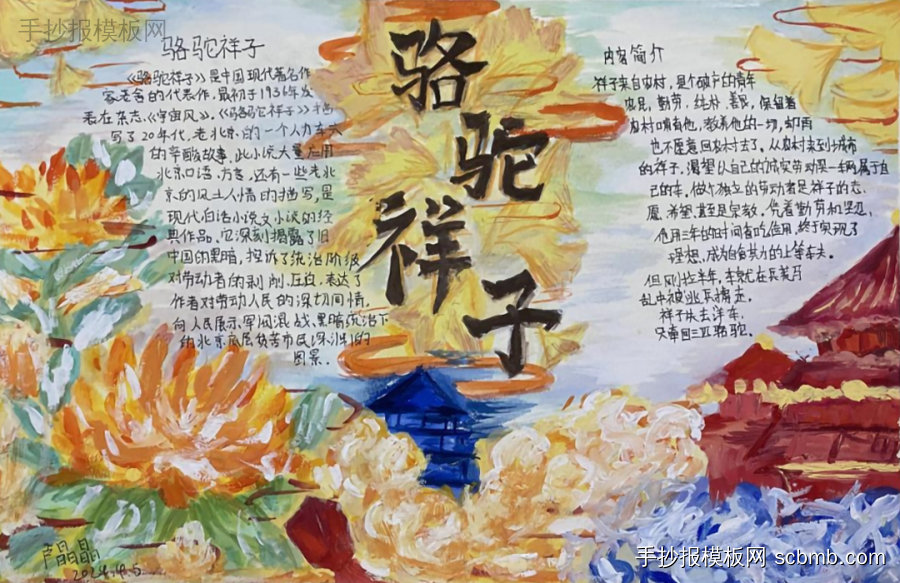 手抄报模板网
骆驼祥子
骆驼祥子
《骆驼祥子》是中国现代著名作
家老舍的代表作,最初于1936年发
表在杂志《宇宙风》,《骆驼祥子》描
写了20年代,老北京的一个人力车夫
的辛酸故事,此小说大量应用
北京口语,方言,还有一些老北
京的风土人情的描写,是
现代白话小说文小说的经
典作品,它深刻揭露了旧
中国的黑暗,控诉了统治阶级
对劳动者的剥削,压迫,表达了
作者对劳动人民的深切同情,
向人民展示军阀混战,黑暗统治下
的北京底层贫苦市民深渊的
图景.
内容简介
祥子来自农村,是个破产的青年
农民,勤劳,纯朴,善良,保留着
农村哺育他,教养他的一切,却再
也不愿意回农村去了,从农村来到城市
的祥子,渴望以自己的诚实劳动买一车辆属于自
己的车,做个独立的劳动者是祥子的志
愿,希望,甚至是宗教,凭着勤劳和坚忍,
他用三年的时间省吃俭用,终于实现了
理想,成为自食其力的上等车夫。
但刚拉半年,车就在兵荒马
乱中被逃兵掳走,
祥子失去洋车,
只牵回三匹骆驼.
芦晶晶
2024.4.5
手抄报模板网 scbmb.com